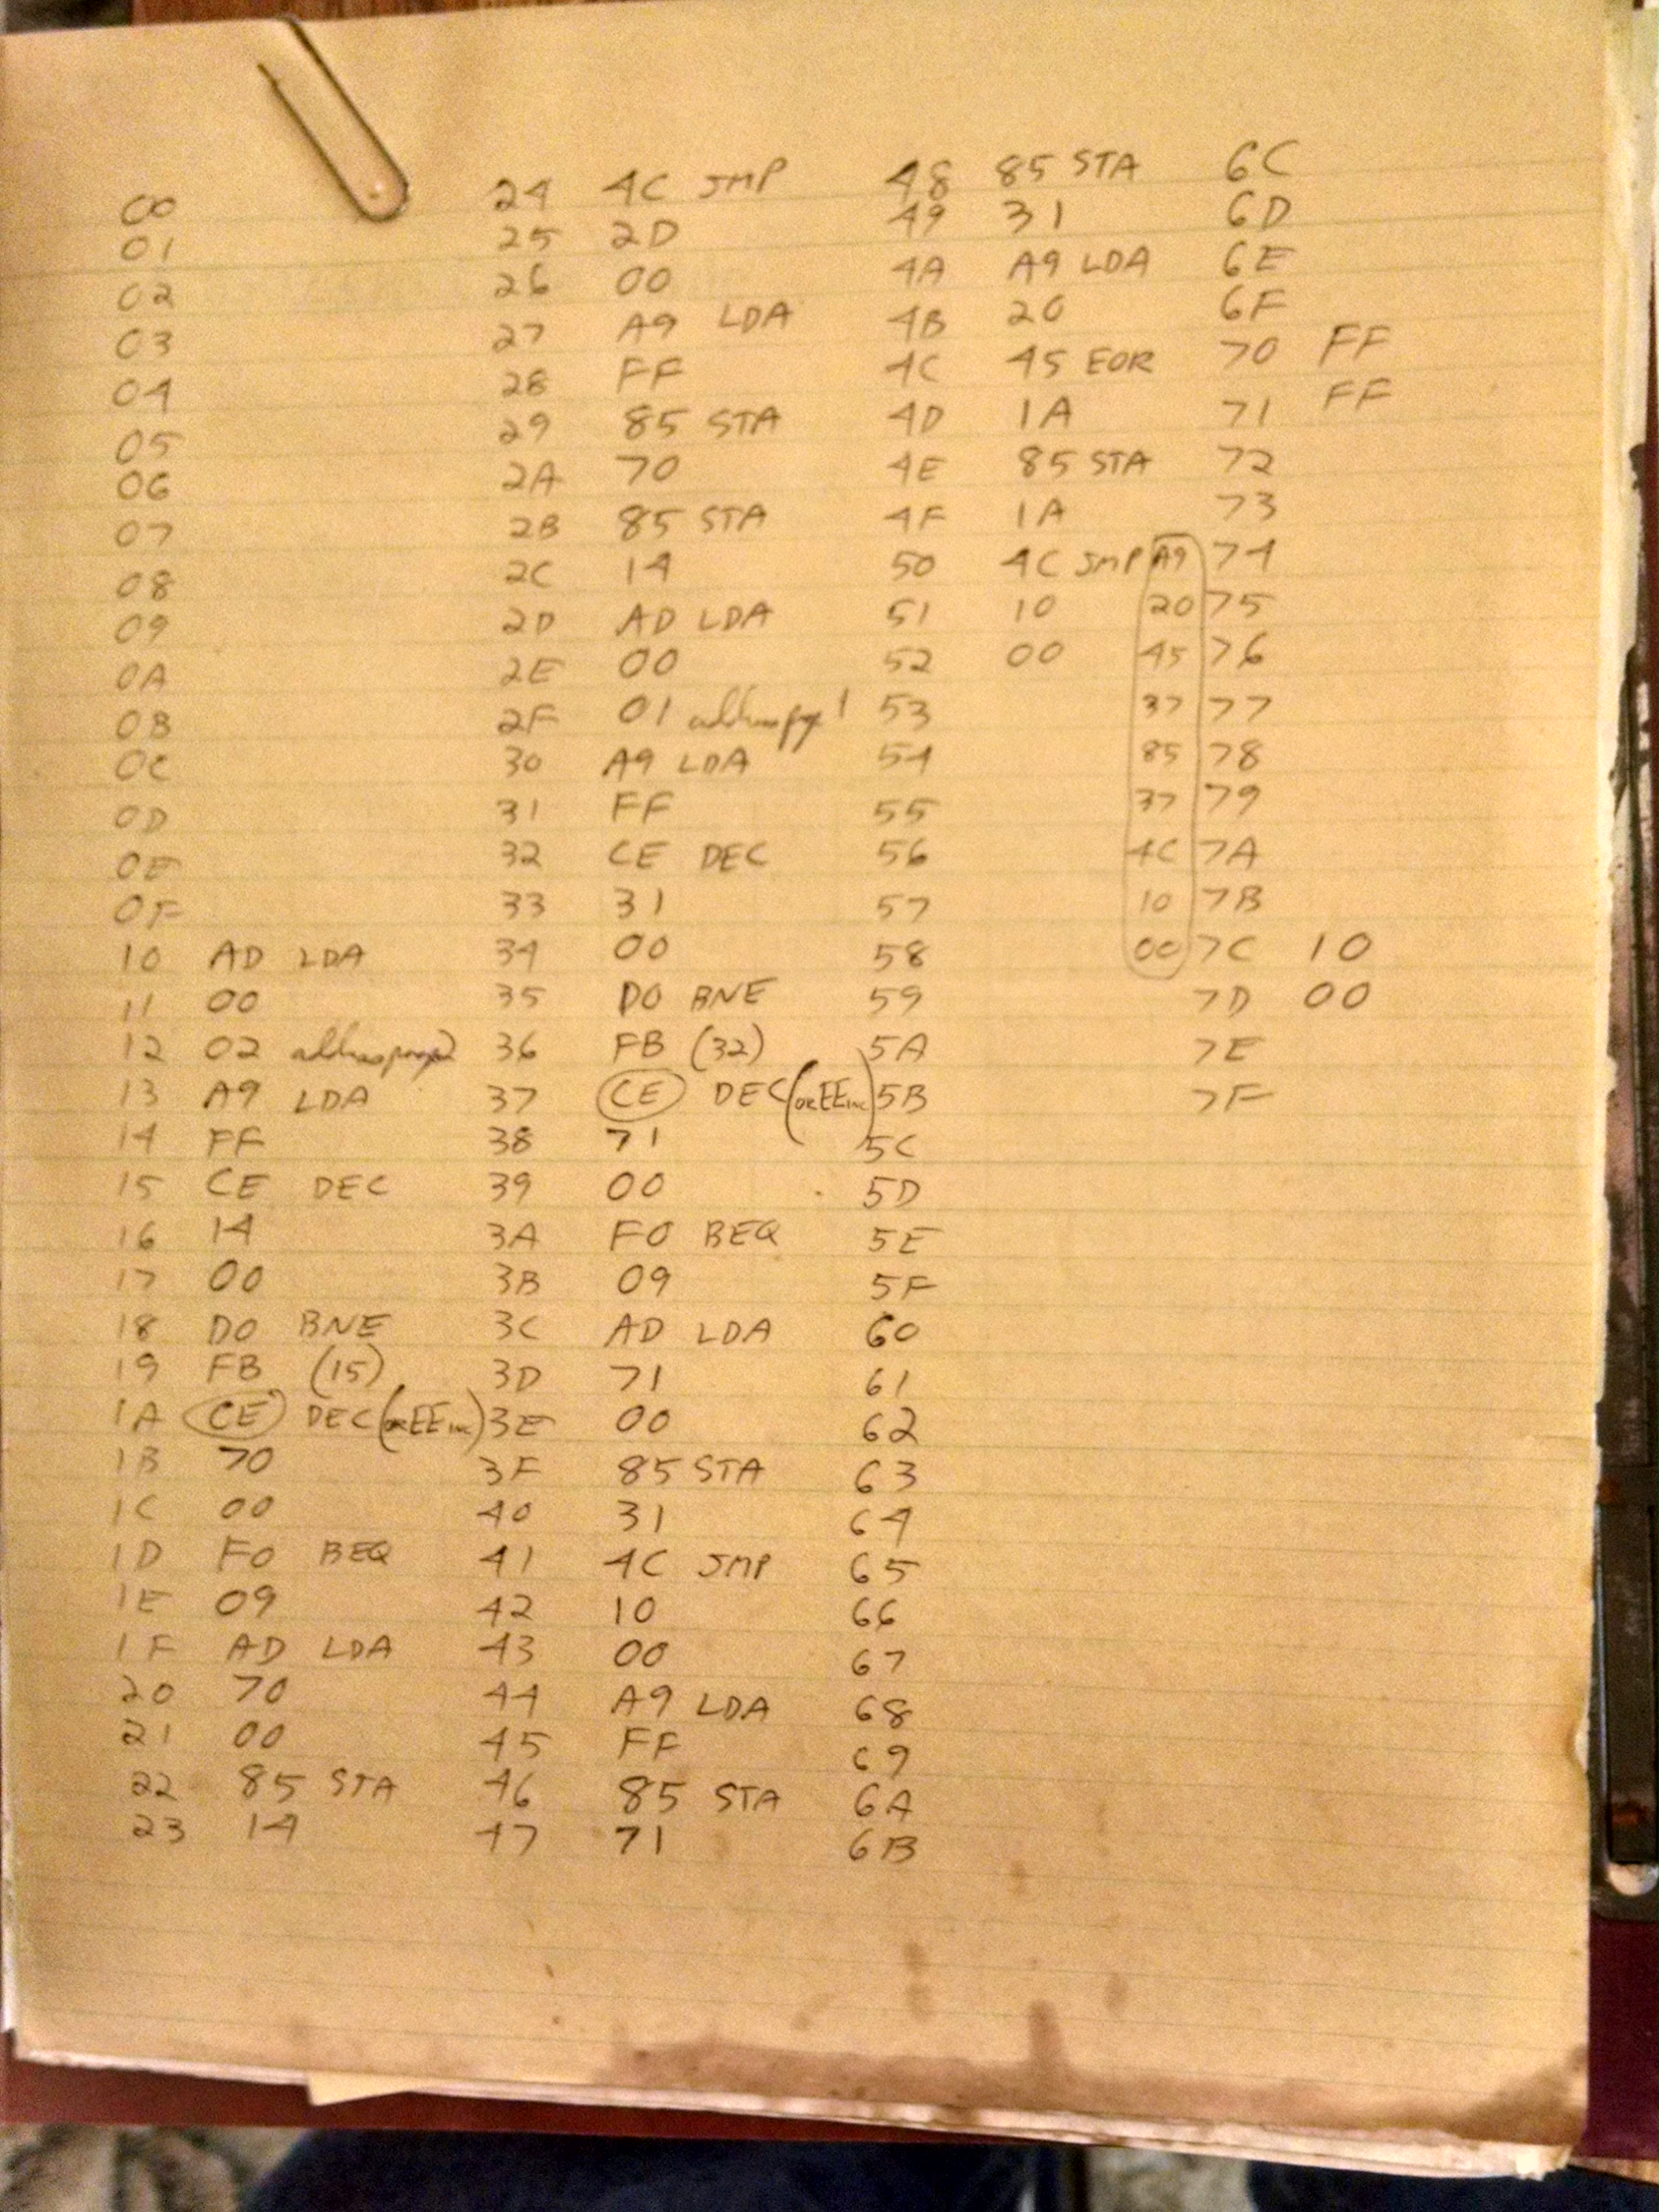 00
01
02
03
04
05
06
07
08
09
0A
0B
0C
0D
0E
0F
10 AD LDA
11 00
12 02 address page 2
13 A9 LDA
14 FF
15 CE DEC
16 14
17 00
18 D0 BNE
19 FB (15)
1A CE DEC (or EE inc)
1B 70
1C 00
1D F0 BEQ
1E 09
1F AD LDA
20 70
21 00
22 85 STA
23 14
24 4C JMP
25 2D
26 00
27 A9 LDA
28 FF
29 85 STA
2A 70
2B 85 STA
2C 14
2D AD LDA
2E 00
2F 01 address pg 1
30 A9 LDA
31 FF
32 CE DEC
33 31
34 00
35 D0 BNE
36 FB (32)
37 CE DEC (or EE inc)
38 71
39 00
3A F0 BEQ
3B 09
3C AD LDA
3D 71
3E 00
3F 85 STA
40 31
41 4C JMP
42 10
43 00
44 A9 LDA
45 FF
46 85 STA
47 71
48 85 STA
49 31
4A A9 LDA
4B 20
4C 45 EOR
4D 1A
4E 85 STA
4F 1A
50 4C JMP
51 10
52 00
53
54
55
56
57
58
59
5A
5B
5C
5D
5E
5F
60
61
62
63
64
65
66
67
68
69
6A
6B
A9
20
45
37
85
37
4C
10
00
6C
6D
6E
6F
70 FF
71 FF
72
73
74
75
76
77
78
79
7A
7B
7C 10
7D 00
7E
7F